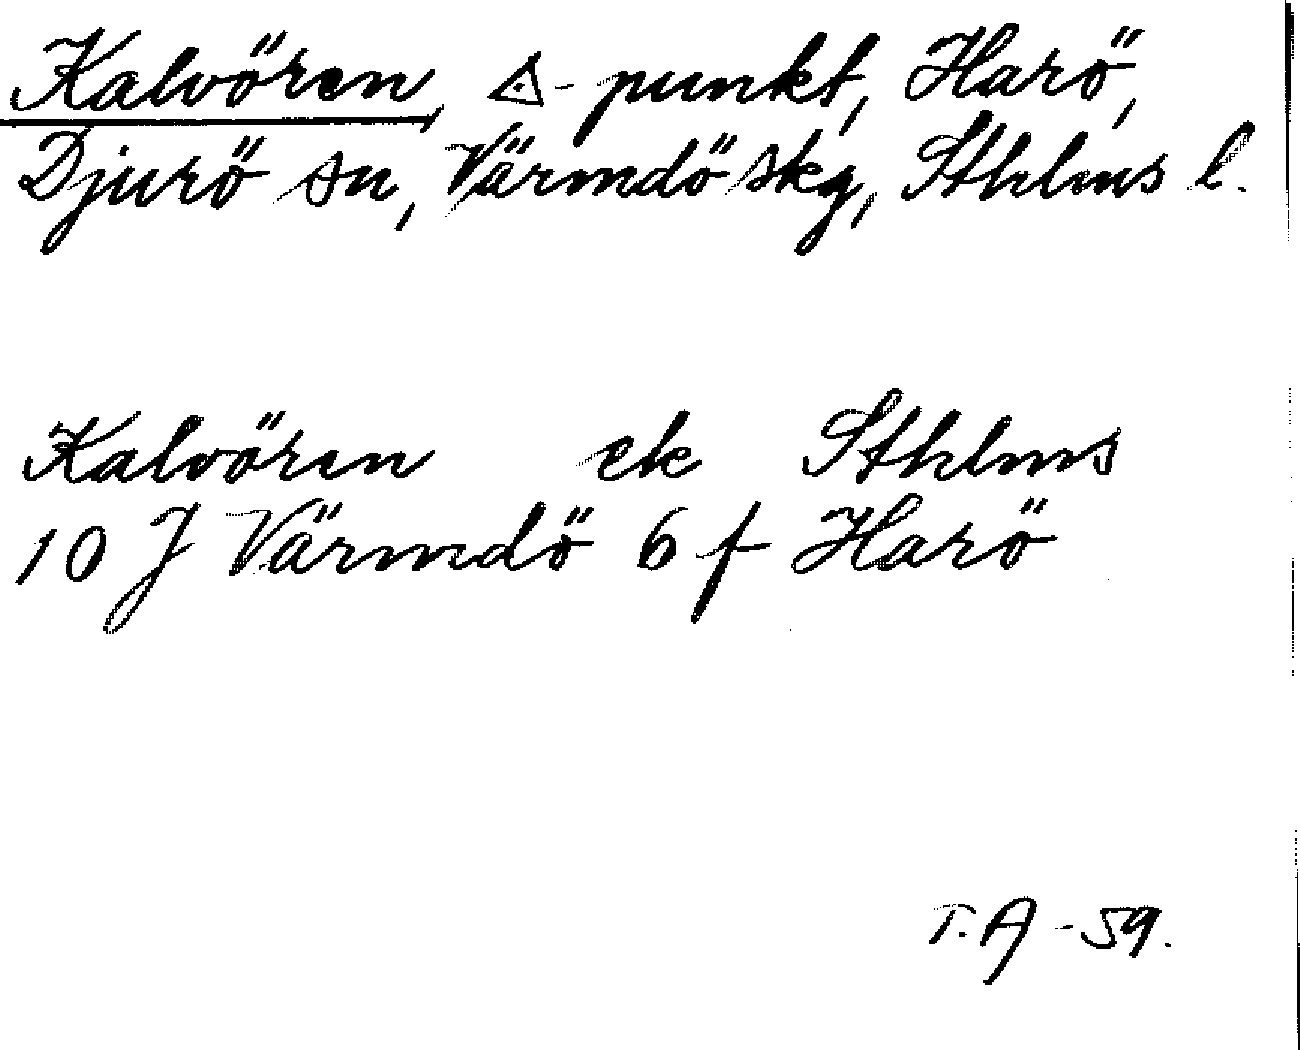 Kalvören, △-punkt, Harö,
Djurö sn, Värmdö skg, Sthlms l.
Kalvören ek Sthlms
10 J Värmdö 6 f Harö
T.A -59.